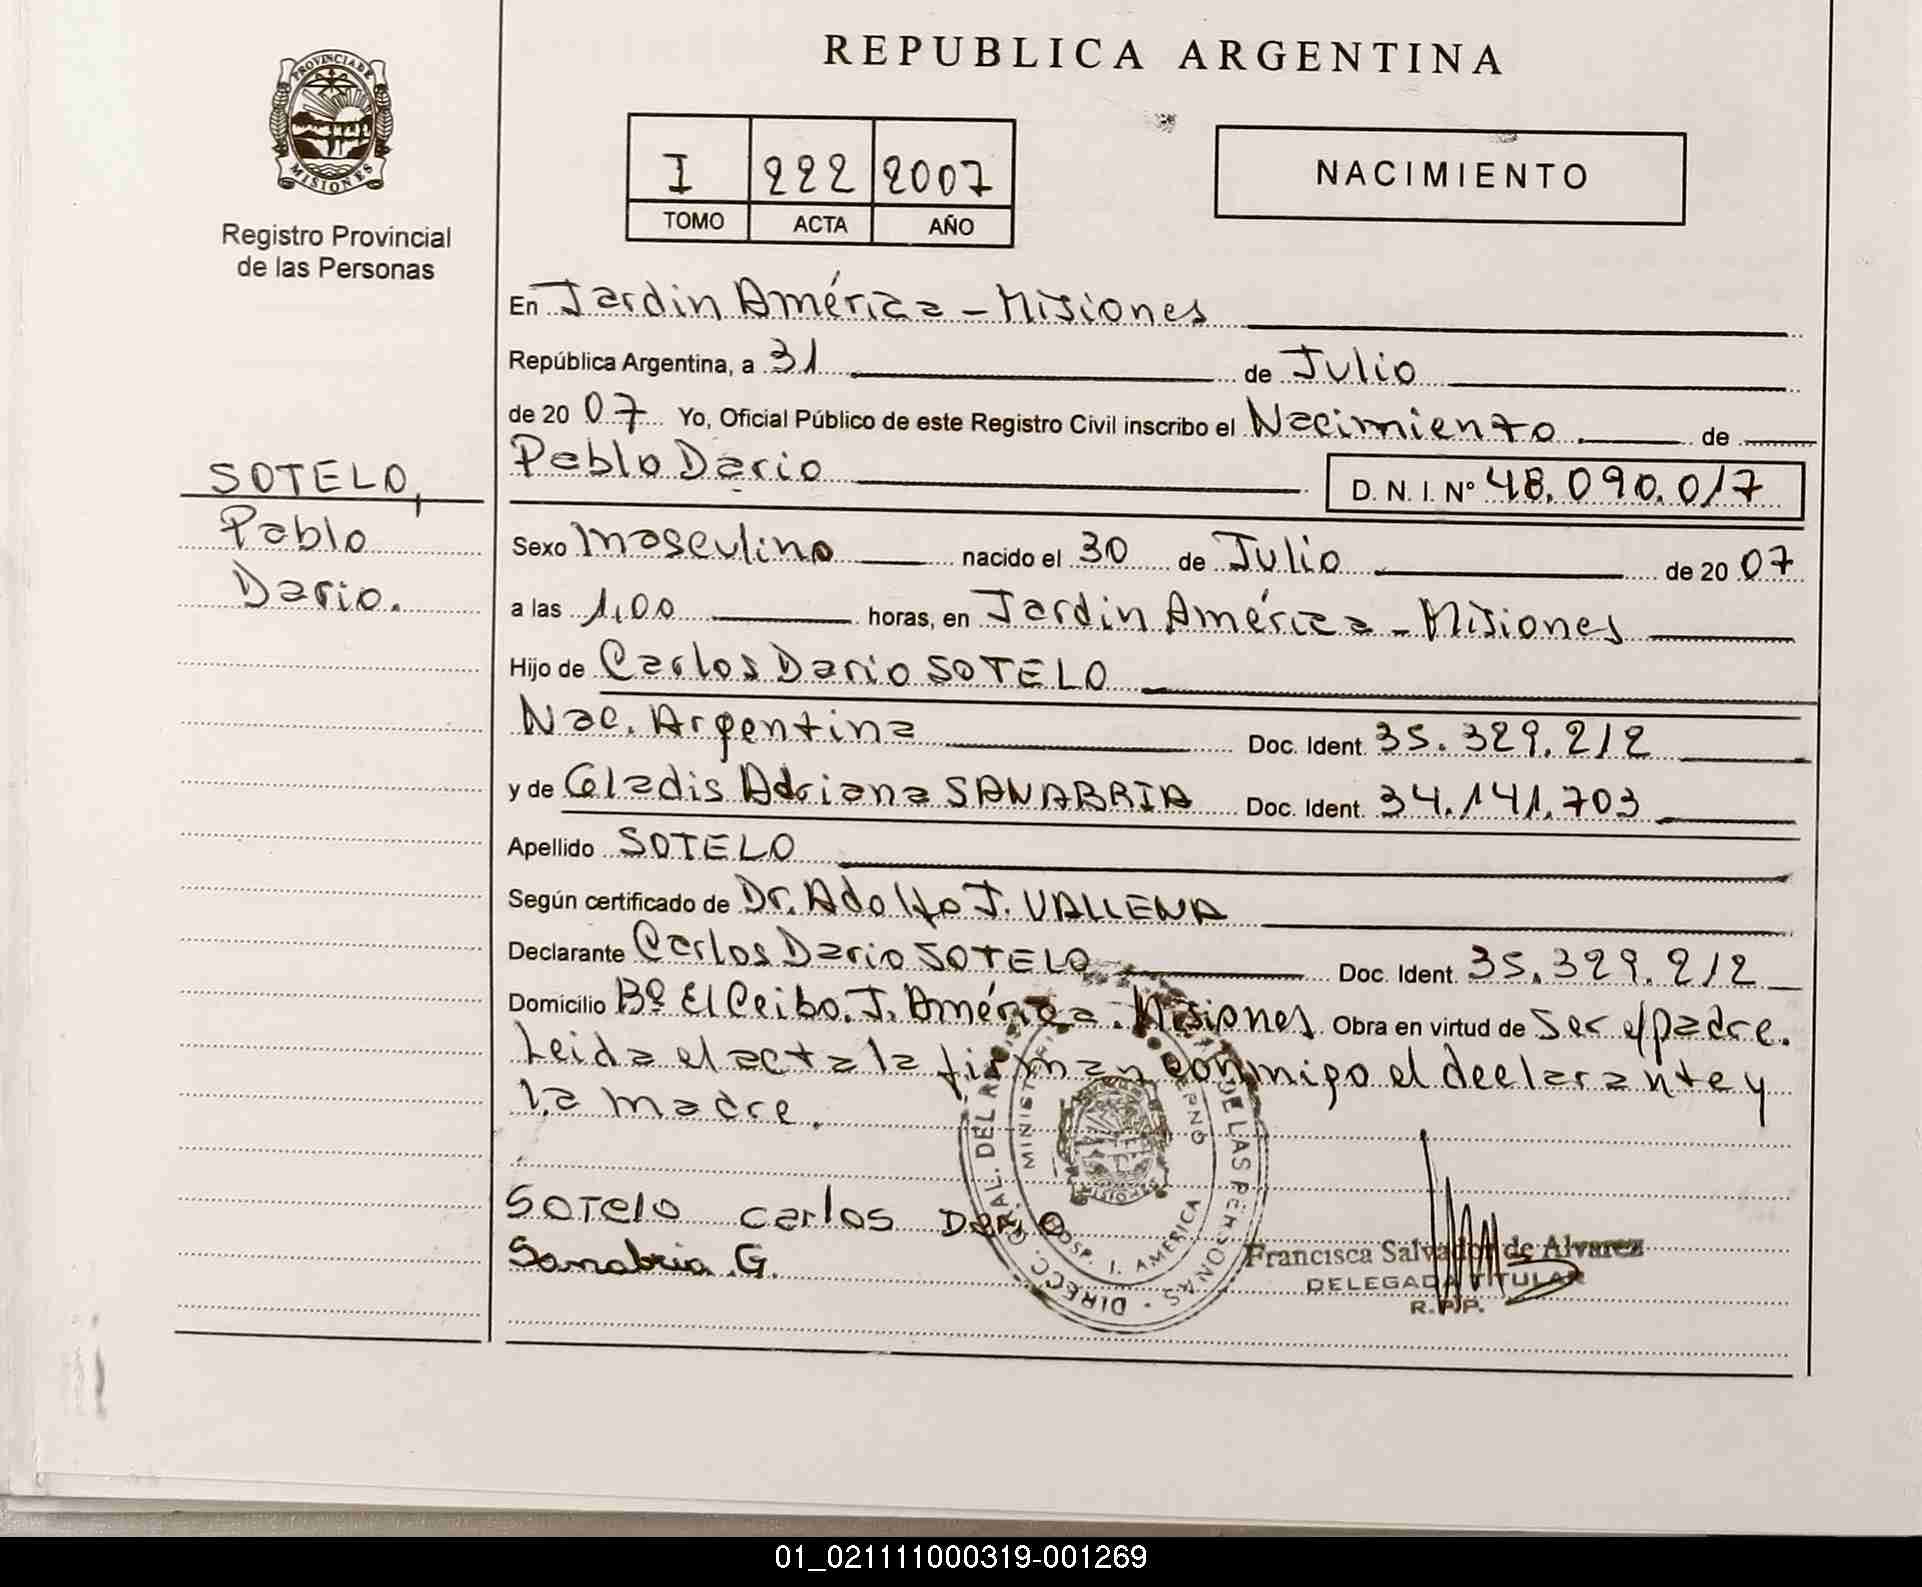 REPUBLICA ARGENTINA
PROVINCIA DE
MISIONES
Registro Provincial
de las Personas
I 222 2007
TOMO ACTA AÑO
NACIMIENTO
SOTELO,
Pablo
Dario.
En Jardin América - Misiones
República Argentina, a 31 de Julio
de 20 07 Yo, Oficial Público de este Registro Civil inscribo el Nacimiento de
Pablo Dario D. N. I. Nº 48.090.017
Sexo masculino nacido el 30 de Julio de 20 07
a las 1,00 horas, en Jardin América - Misiones
Hijo de Carlos Dario SOTELO
Nac. Argentina Doc. Ident. 35.329.212
y de Gladis Adriana SANABRIA Doc. Ident. 34.141.703
Apellido SOTELO
Según certificado de Dr. Adolfo J. VALLENA
Declarante Carlos Dario SOTELO Doc. Ident. 35.329.212
Domicilio Bº El Ceibo. J. América. Misiones Obra en virtud de ser el padre.
Leida el acta la firman conmigo el declarante y
la madre.
SOTELO Carlos Dario
Sanabria G.
DIRECC. GRAL. DEL DE LAS PERSONAS
HOSP. J. AMERICA
Francisca Salvador de Alvarez
DELEGADA TITULAR
R.P.P.
01_021111000319-001269